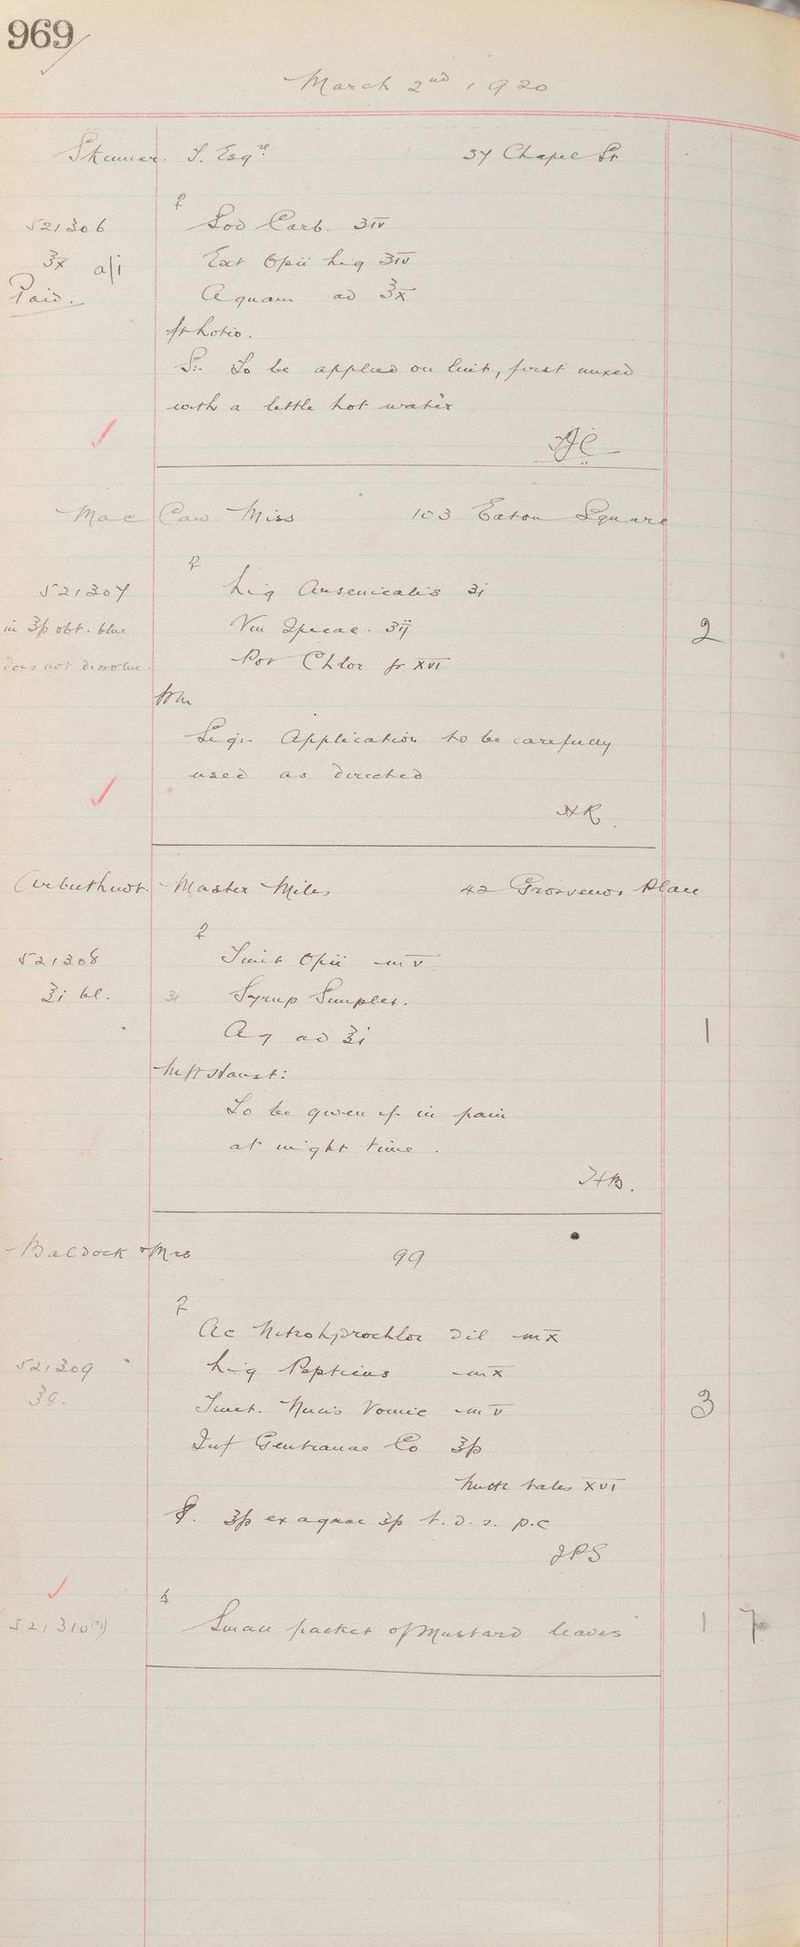 969
March 2nd 1920
Skinner. T. Esqre 37 Chapel St
℞
521306 Sod Carb. ʒiv
℥x a/i Ext Opii Liq ʒiv
Paid. Aquam ad ℥x
ft Lotio.
S:- To be applied on lint, first mixed
with a little hot water
Mac Caw Miss 103 Eaton Square
℞
521307 Liq Arsenicalis ʒi
in ℥ß obt. blue Vin Ipecac. ʒij 2
does not dissolve. Pot Chlor gr XVI
ft m
Sig:- Application to be carefully
used as directed
HR
Arbuthnot. Master Miles 42 Grosvenor Place
℞
521308 Tinct Opii ♏ v
℥i bl. ʒi Syrup Simplex.
Aq ad ℥i 1
M ft Haust:
To be given if in pain
at night time.
HB.
Baldock Mrs 99
℞
Ac Nitrohydrochlor Dil ♏ x
521309 Liq Pepticus ♏ x
℥8. Tinct. Nucis Vomic ♏ v 3
Inf Gentianae Co ℥ß
Mitte tales XVI
S. ℥ß ex aquae ℥ß t.d.s. p.c
JPS
&
521310 Small packet of Mustard leaves 1 7